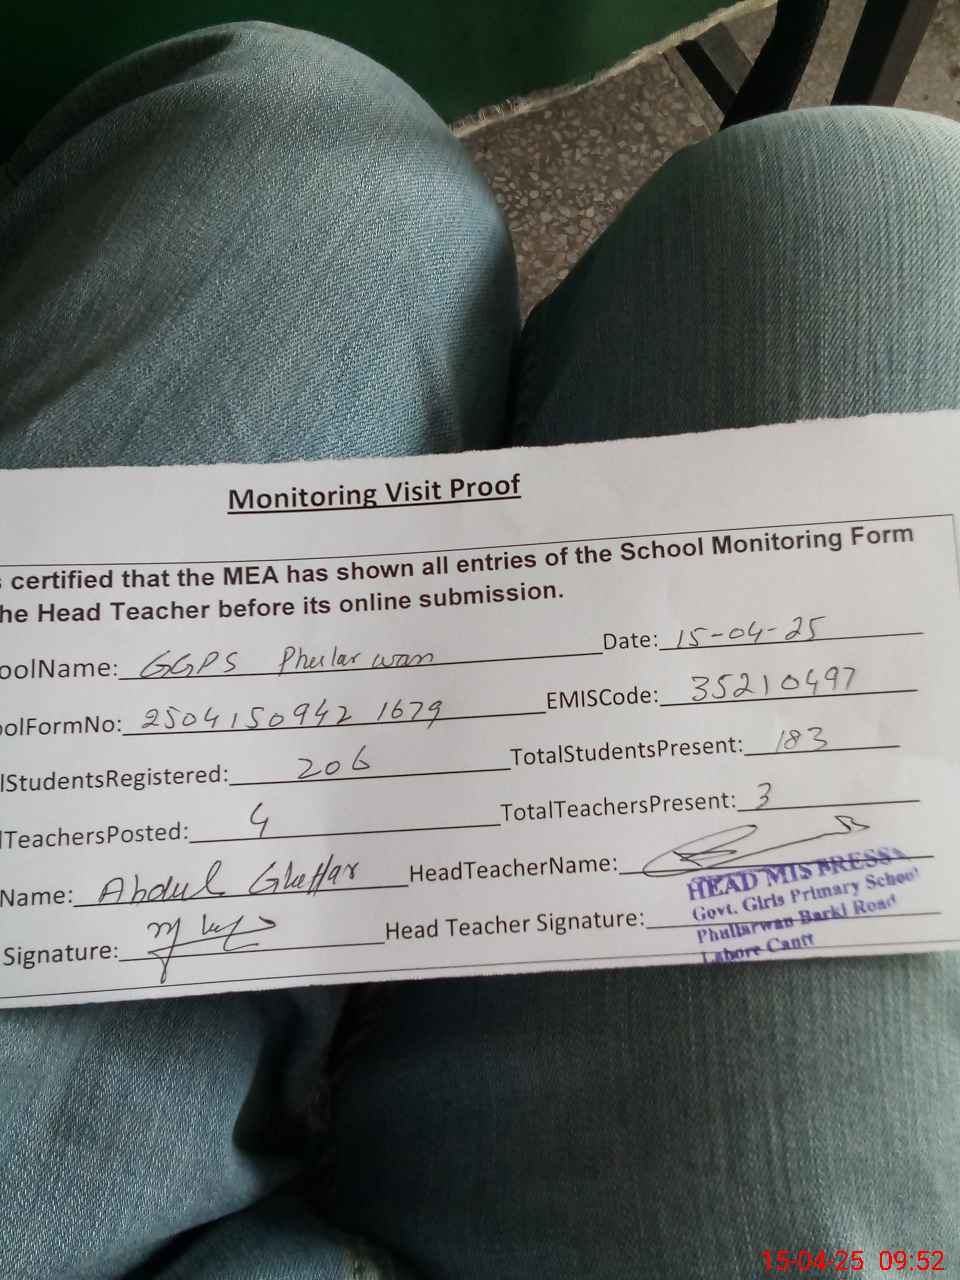 Monitoring Visit Proof
certified that the MEA has shown all entries of the School Monitoring Form
he Head Teacher before its online submission.
oolName: GGPS Phularwan Date: 15-04-25
olFormNo: 2504150942 1679 EMISCode: 35210497
lStudentsRegistered: 206 TotalStudentsPresent: 183
lTeachersPosted: 4 TotalTeachersPresent: 3
Name: Abdul Ghaffar HeadTeacherName:
Signature: Head Teacher Signature:
HEAD MISTRESS
Govt. Girls Primary School
Phullarwan Barki Road
Lahore Cantt
15-04-25 09:52